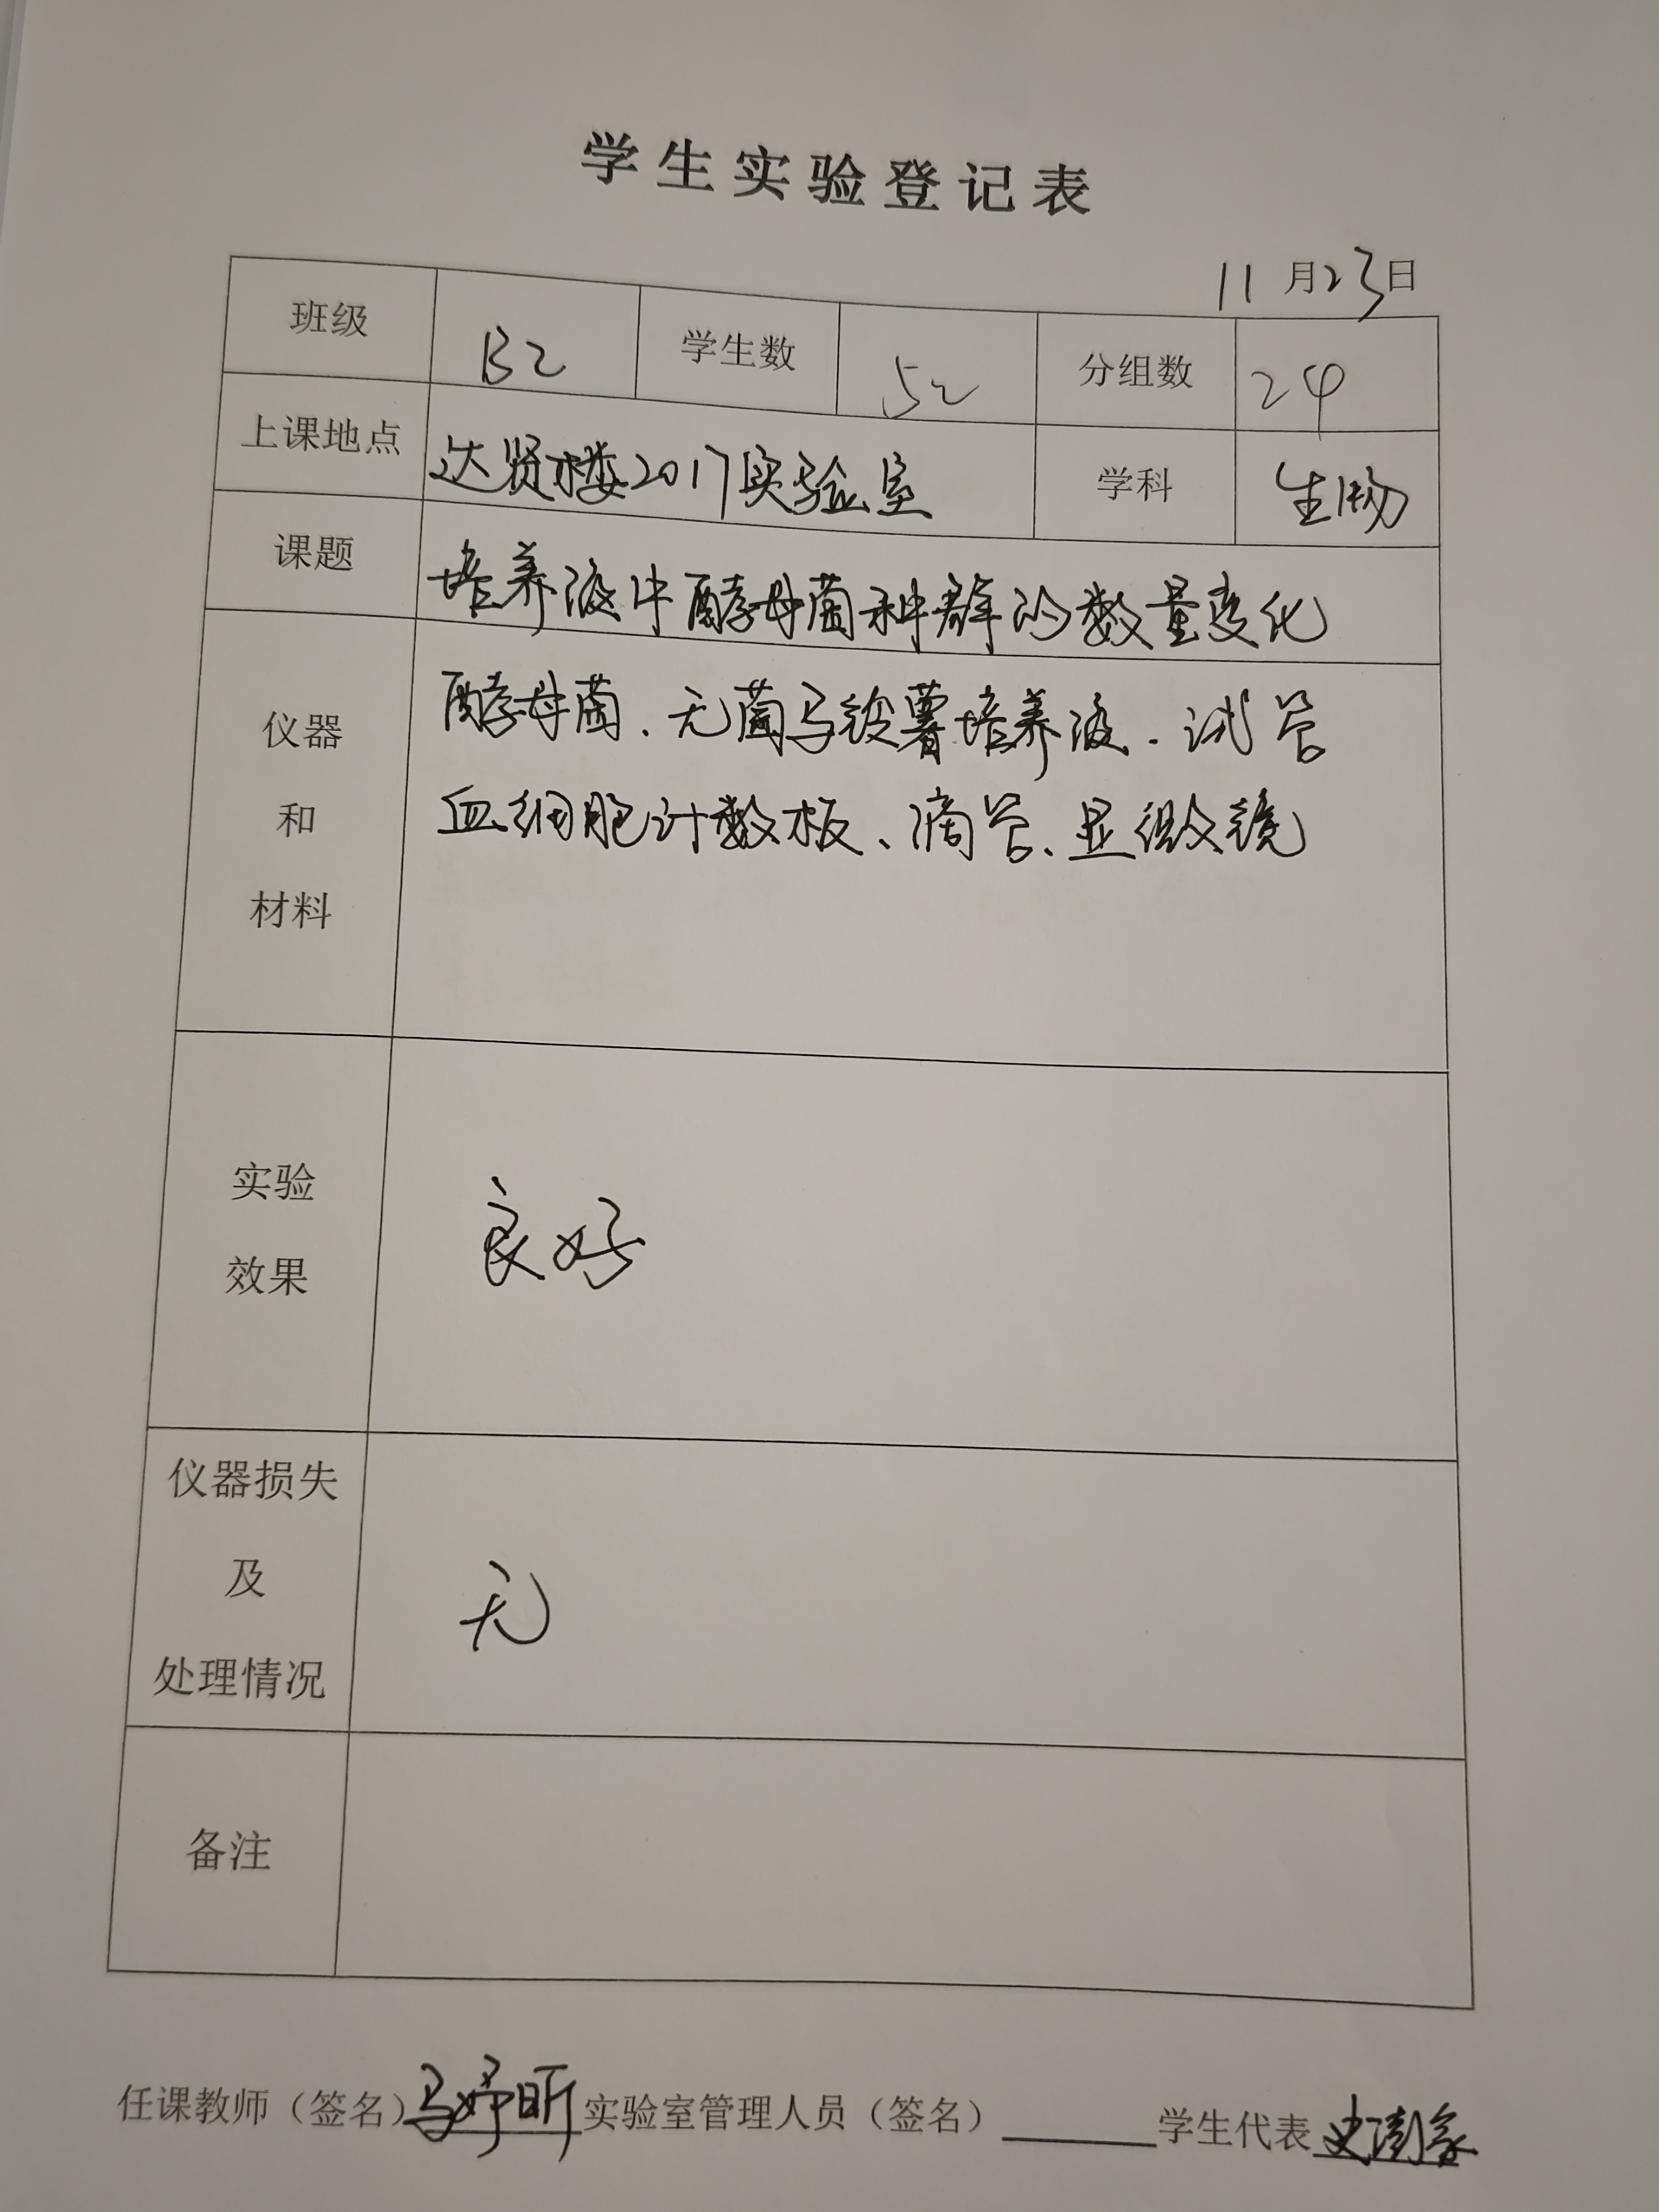 学生实验登记表
11月23日
班级 B2 学生数 52 分组数 24
上课地点 达贤楼2017实验室 学科 生物
课题 培养液中酵母菌种群的数量变化
仪器和材料
酵母菌、无菌马铃薯培养液、试管
血细胞计数板、滴管、显微镜
实验效果 良好
仪器损失及处理情况 无
备注
任课教师（签名）马婷昕 实验室管理人员（签名） 学生代表 史